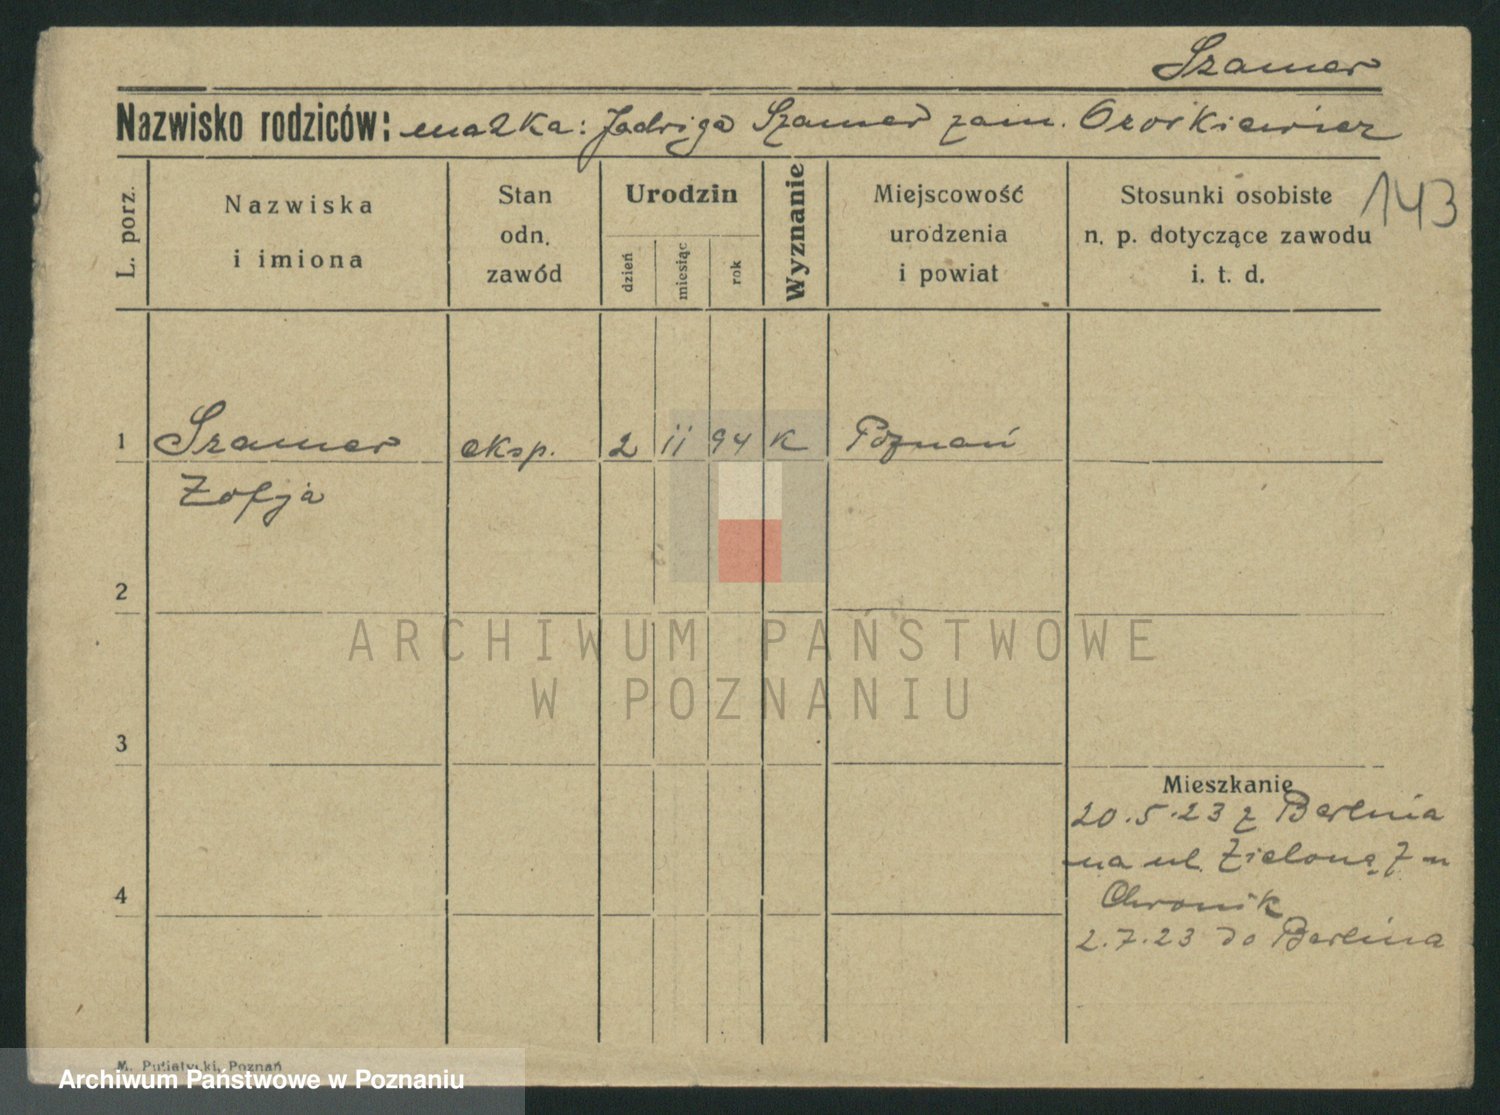 Szamer
Nazwisko rodziców: matka: Jadwiga Szamer zam.
143
L. porz.
Nazwiska
i imiona
Stan
odn.
zawód
Urodzin
dzień
miesiąc
rok
Wyznanie
Miejscowość
urodzenia
i powiat
Stosunki osobiste
n. p. dotyczące zawodu
i. t. d.
1 Szamer eksp. 2 ii 94 K Poznań
Zofja
2
3
4
Mieszkanie
20.5.23 z Berlina
na ul. Zieloną 7 u
Chronik
2.7.23 do Berlina
ARCHIWUM PAŃSTWOWE
W POZNANIU
M. Putiatycki, Poznań
Archiwum Państwowe w Poznaniu